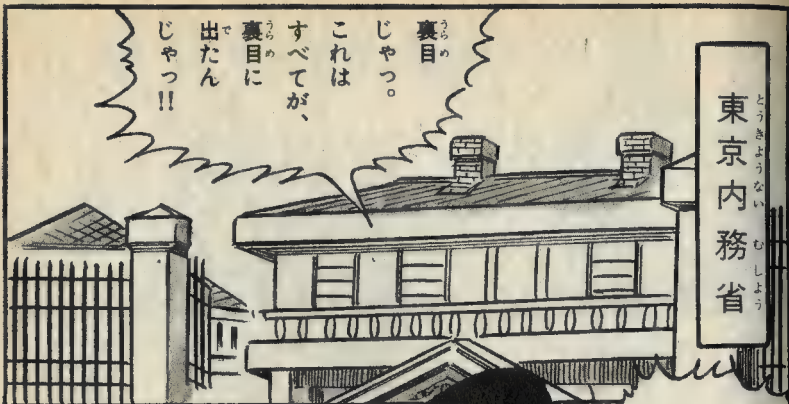 東京内務省
とうきょうない むしょう
裏目
うらめ
じゃっ。
これは
すべてが、
裏目に
うらめ
出たん
で
じゃっ!!